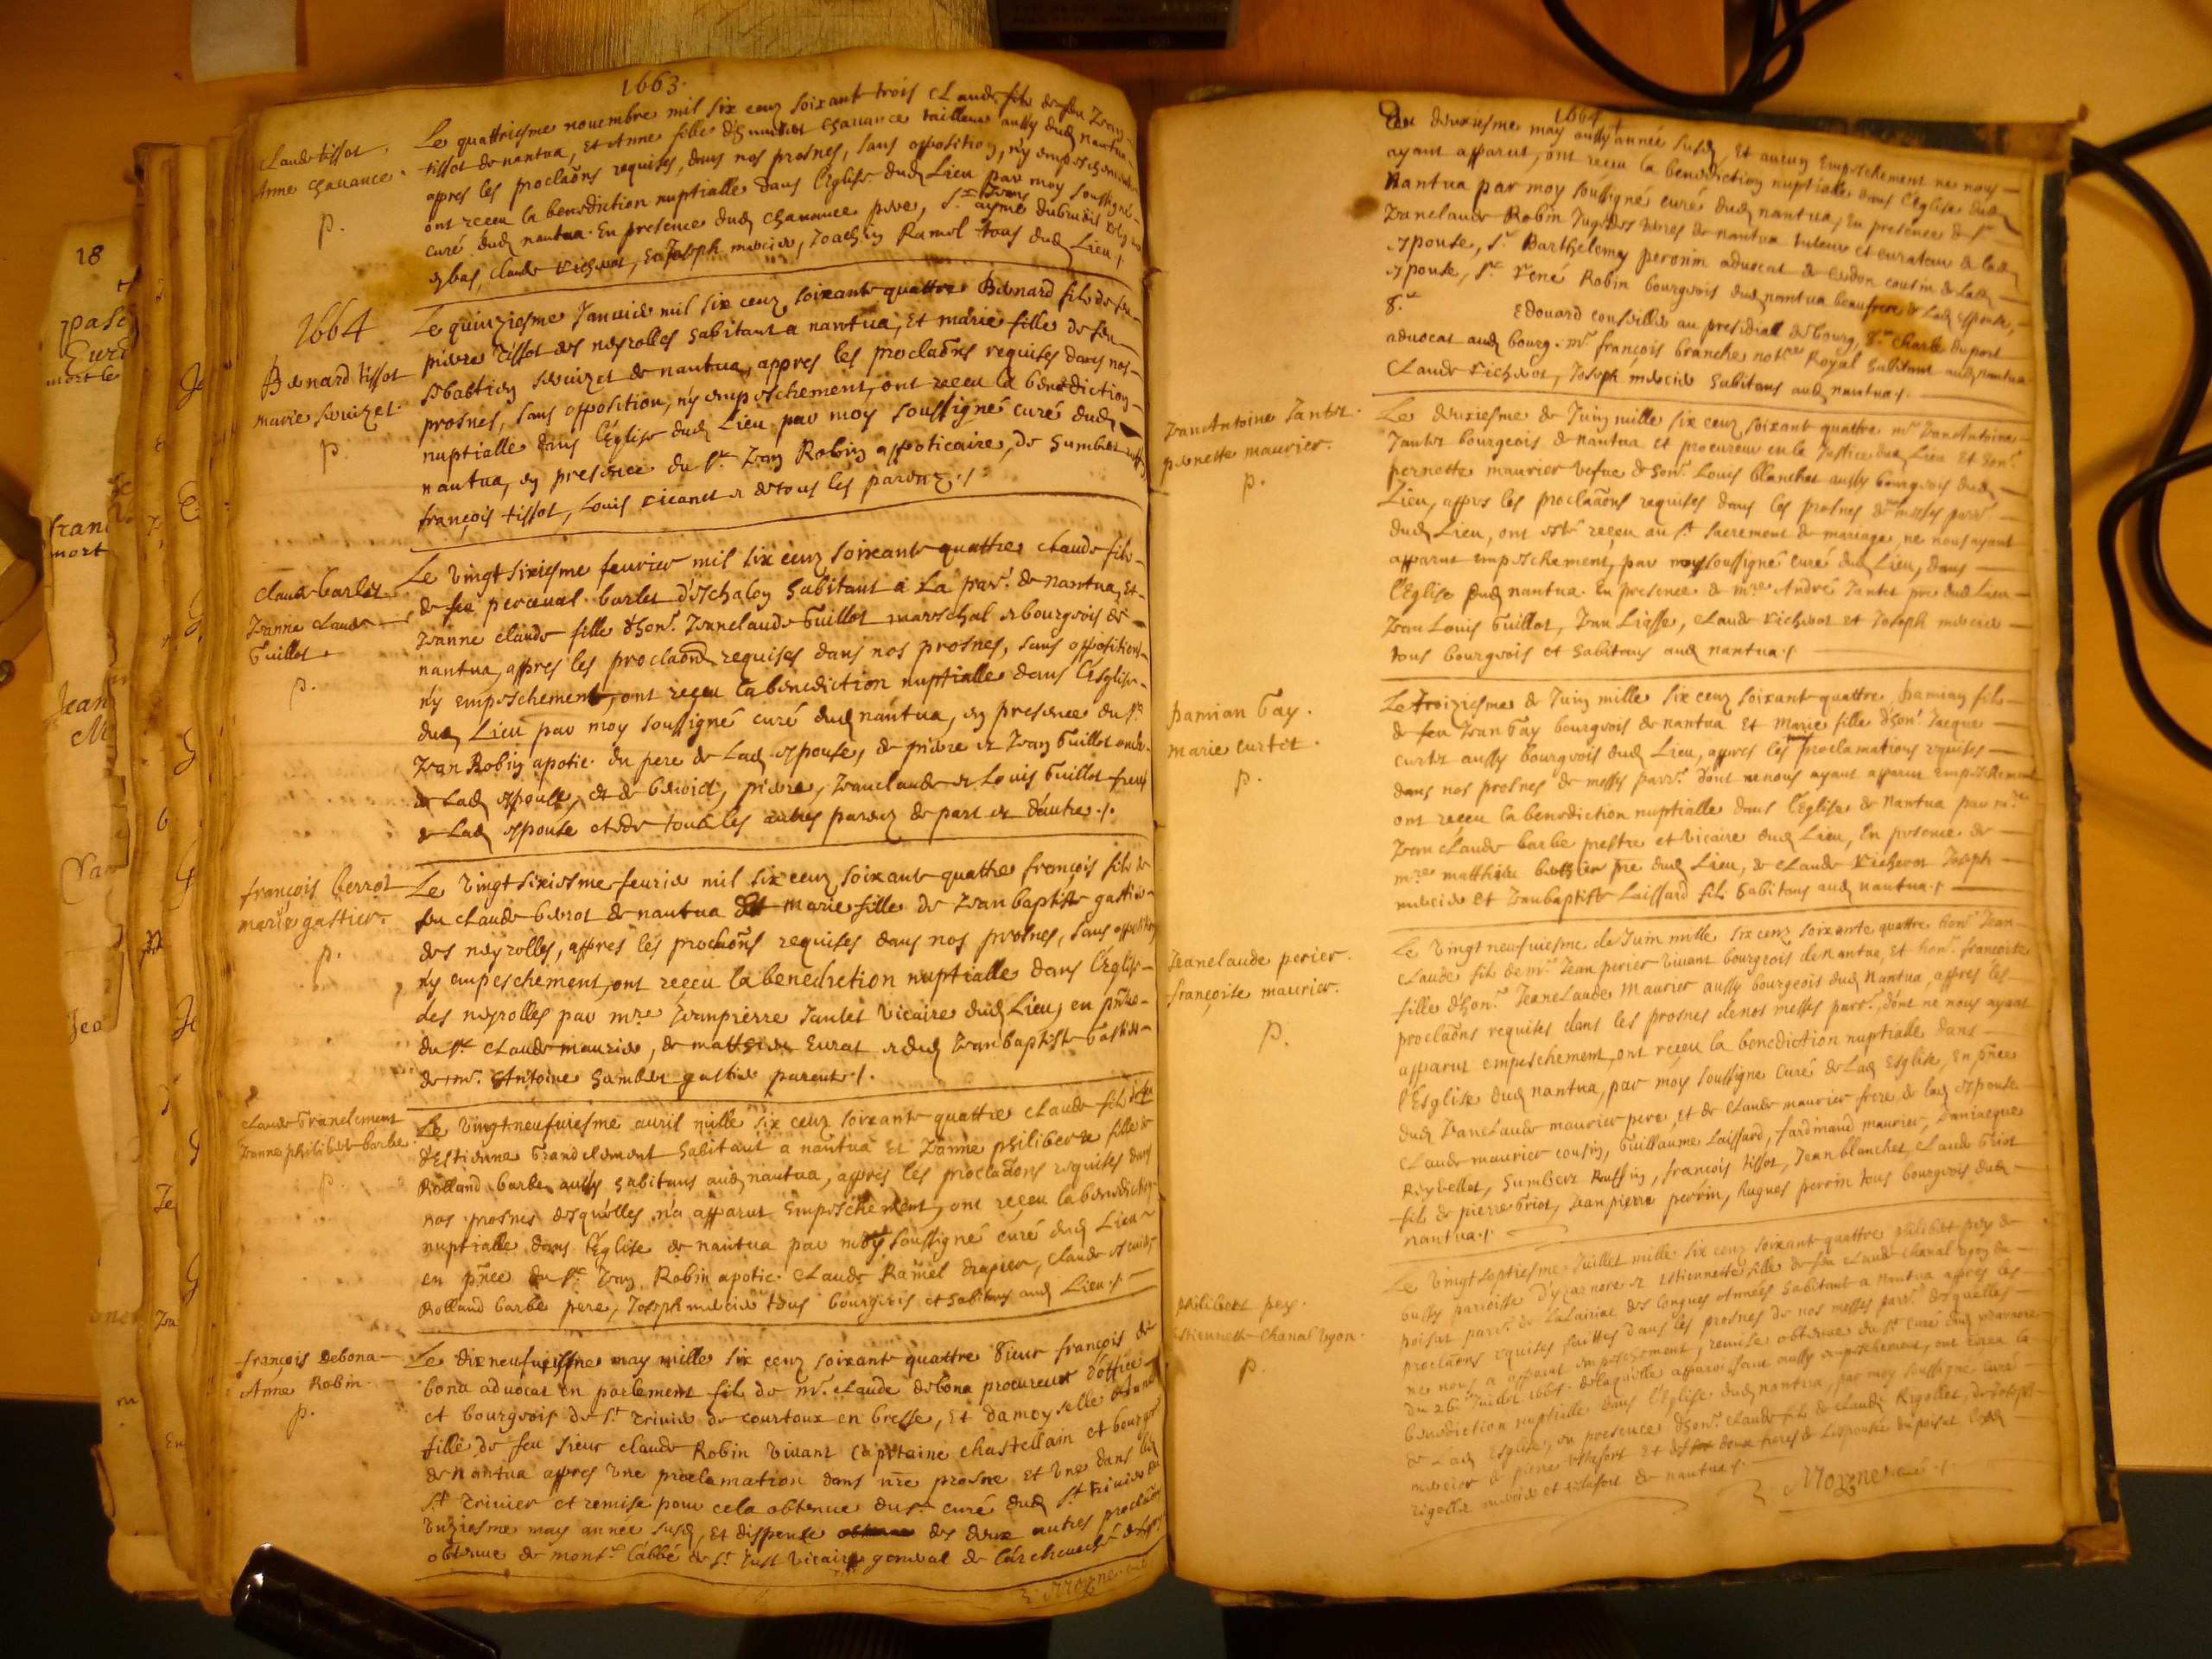 1663.
Claude tissot.
Anne Chauance.
p.
Le quattriesme nouembre mil six cenz soixant trois Claude fils de feu Jean
tissot de nantua, et Anne fille d'hunbert Chauance tailleur aussy dud nantua
apres les proclaõns requises, dans nos prosnes, sans opposition, n'y empeschement
ont receu la benediction nuptialle dans l'Eglise dud Lieu par moy soussigné
curé dud nantua. En presence dud Chauance pere, Sr. ayme
en bas, Claude Vicherot, et Joseph mercier, Joachim Ramel tous dud Lieu./.
1664
Bernard tissot
marie seruizet.
p.
Le quinziesme Januier mil six cenz soixante quattre Bernard fils de feu
pierre tissot des neyrolles habitant a nantua, et marie fille de feu
Sebastien seruizet de nantua, appres les proclaõns requises dans nos
prosnes, sans opposition, n'y empeschement, ont receu la benediction
nuptialle dans l'Eglise dud Lieu par moy soussigné curé dud
nantua, en presence du Sr. Jean Robin appoticaire, de humbert
françois tissot, Louis et de tous les parenz./.
Claude barlet
Jeanne Claude
Guillot.
p.
Le vingt sixiesme feurier mil six cenz soixante quattre Claude fils
de feu perceual barlet d'Eschalon habitant a La parr. de nantua, Et
Jeanne claude fille d'hon. Jeanclaude Guillot mareschal et bourgeois de
nantua, appres les proclaõns requises dans nos prosnes, sans opposition
n'y empeschement, ont receu la benediction nuptialle dans l'Esglise
dud Lieu par moy soussigné curé dud nantua, en presence du Sr.
Jean Robin apotic. du pere de Lad espouse, de pierre et Jean Guillot oncles
de Lad espouse, et de benoict, pierre, Jeanclaude et Louis Guillot freres
de Lad espouse et de tous les autres parenz de part et dautre./.
françois berrot
marie gastier.
p.
Le vingt sixiesme feurier mil six cenz soixante quattre françois fils de
feu claude berrot de nantua et marie fille de Jean baptiste gastier
des neyrolles, appres les proclaõns requises dans nos prosnes, sans opposition
n'y empeschement, ont receu la benediction nuptialle dans l'Eglise
des neyrolles par mre Jeanpierre Jantet vicaire dud Lieu, en pñce
du Sr. Claude maurier, de matthieu Eurat et dud Jean baptiste Gastier
de mr. Antoine humbert gastier parent./.
Claude Grandclement
Jeanne philiberte barbe.
p.
Le vingtneufuiesme auril mille six cenz soixante quattre Claude fils de feu
d'Estienne Grandclement habitant a nantua Et Jeanne philiberte fille de
Rolland barbe aussy habitans aud nantua, appres les proclaõns requises dans
nos prosnes desquelles n'a apparut Empeschement, ont receu la benediction
nuptialle dans l'Eglise de nantua par moy soussigné curé dud Lieu
en pñce du Sr. Jean Robin apotic. Claude Ramel drapier, Claude
Rolland barbe pere, Joseph mercier tous bourgeois et habitans aud Lieu./.
françois Debona
Anne Robin.
p.
Le dixneufuiesme may mille six cenz soixant quattre Sieur françois de
bona aduocat en parlement fils de mr. claude debona procureur d'office
et bourgeois de St. triuier de courtoux en bresse, Et damoyselle Anne
fille de feu sieur claude Robin viuant Capitaine chastellain et bourgeois
de nantua appres vne proclamation dans nre prosne et vne dans
St. triuier et remise pour cela obtenue du Sr. curé dud St. triuier du
vnziesme may année susd, et dispense des deux autres proclaõns
obtenue de monsr. l'abbé de St. Just vicaire general de l'archeuesché de Lyon
Moyne curé
1664.
Du deuxiesme may aussy année susd, Et aucun Empeschement ne nous
ayant apparut, ont receu la benediction nuptialle dans l'Eglise dud
Nantua par moy soussigné curé dud nantua, En presence de Sr.
Jeanclaude Robin Juge des terres de nantua tuteur et curateur de lad
espouse, Sr. Barthelemy peronin aduocat de Cerdon cousin de Lad
espouse, Sr. René Robin bourgeois dud nantua beaufrere de Lad espouse,
Sr. Edouard conseiller au presidiall de bourg, Sr. Charle duport
aduocat aud bourg. mr. françois branche notre Royal habitant aud nantua.
Claude Vicherot, Joseph mercier habitans aud nantua./.
Jean Antoine Jantet.
pernette maurier.
p.
Le deuxiesme de Juin mille six cenz soixant quattre mr. Jean Antoine
Jantet bourgeois de nantua et procureur en la Justice dud Lieu Et hon.
pernette maurier vefue de hon. Louis blanchet aussy bourgeois dud
Lieu, appres les proclaõns requises dans les prosnes de nos messes parr.
dud Lieu, ont esté receu au St. sacrement de mariage, ne nous ayant
apparut empeschement, par moy soussigné curé dud Lieu, dans
l'Eglise dud nantua. En presence de mre André Jantet pre dud Lieu
Jean Louis Guillot, Jean Liasse, Claude Vicherot et Joseph mercier
tous bourgeois et habitans aud nantua./.
Damian Gay.
marie curtet.
p.
Le troiziesme de Juin mille six cenz soixant quattre, Damian fils
de feu Jean Gay bourgeois de nantua Et Marie fille d'hon. Jacque
curtet aussy bourgeois dud Lieu, appres les proclamations requises
dans nos prosnes de messes parr. dont ne nous ayant apparut empeschement
ont receu la benediction nuptialle dans l'Eglise de Nantua par mre
Jean claude barbe prestre et vicaire dud Lieu, En presence de
mre matthieu pre dud Lieu, de claude Vicherot Joseph
mercier et Jeanbaptiste Laissard fils habitans aud nantua./.
Jeanclaude perier.
françoise maurier.
p.
Le vingt neufuiesme de Juin mille six cenz soixante quattre hon. Jean
Claude fils de mr. Jean perier viuant bourgeois de Nantua, Et hon. francoise
fille d'hon. Jeanclaude Maurier aussy bourgeois dud Nantua, appres les
proclaõns requises dans les prosnes de nos messes parr., dont ne nous ayant
apparut empeschement, ont receu la benediction nuptialle dans
l'Esglise dud nantua, par moy soussigné Curé de Lad Esglise, En pñce
dud Jeanclaude maurier pere, et de claude maurier frere de lad espouse
Claude maurier cousin, Guillaume Laissard, fardinand maurier, Jeanjacque
Reybellet, humbert Roussin, françois tissot, Jean blanchet, Claude Griot
fils de pierre Griot, Jean pierre perrin, hugues perrin tous bourgeois dud
nantua./.
philibert pey.
Estiennette Chanal vgon.
p.
Le vingtseptiesme Juillet mille six cenz soixant quattre philibert pey de
bussy parroisse d'yzarnore et Estiennette fille de feu Claude Chanal vgon du
poisat parr. de Lalairiat des longues années habitant a Nantua appres les
proclaõns requises faittes dans les prosnes de nos messes parr. desquelles
ne nous a apparut empeschement, remise obtenue du Sr. Curé dud yzarnore
du 26e Juillet 1664. de laquelle apparoissant aussy empeschement, ont receu la
benediction nuptialle dans l'Eglise dud nantua, par moy soussigné curé
de Lad Esglise, en presence d'hon. claude fils de claude Rigollet, de Joseph
mercier de pierre et des deux freres de L'espouse du poisat lesd
rigollet mercier et de nantua./.
Moyne curé./.